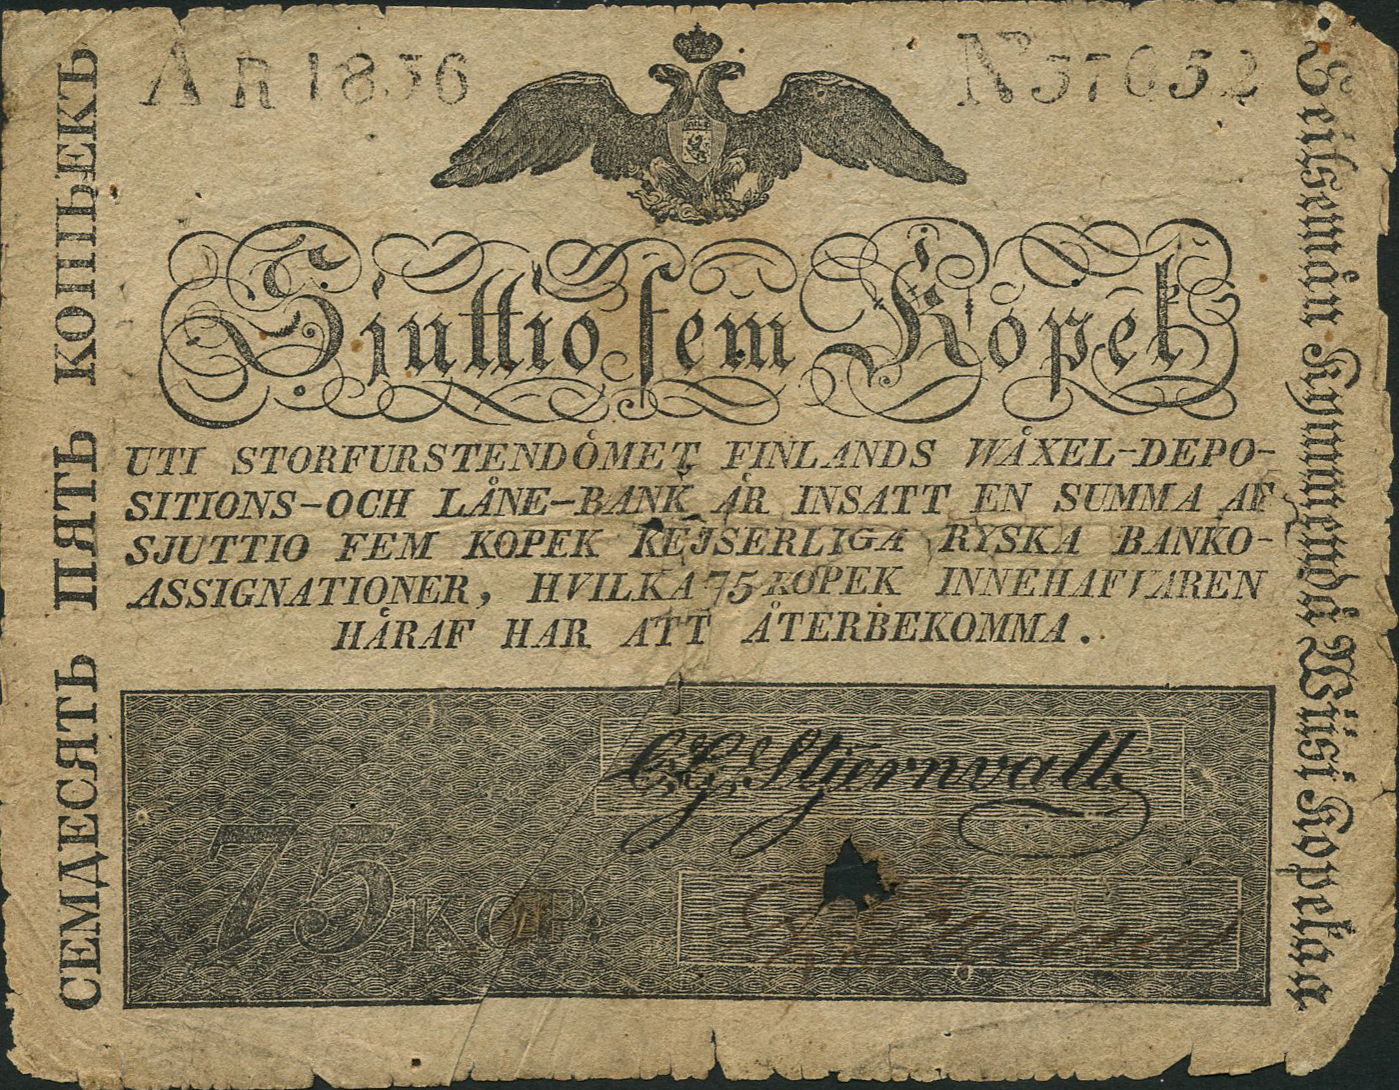 ÅR 1836
No 37652
Sjuttio fem Kopek
UTI STORFURSTENDÖMET FINLANDS WÄXEL-DEPO-
SITIONS-OCH LÅNE-BANK ÄR INSATT EN SUMMA AF
SJUTTIO FEM KOPEK KEJSERLIGA RYSKA BANKO-
ASSIGNATIONER, HVILKA 75 KOPEK INNEHAFVAREN
HÄRAF HAR ATT ÅTERBEKOMMA.
C. G. Stjernvall.
75 KOP.
СЕМДЕСЯТЬ ПЯТЬ КОПѢЕКЪ
Seitsemän Kymmendä Wiisi Kopekaa